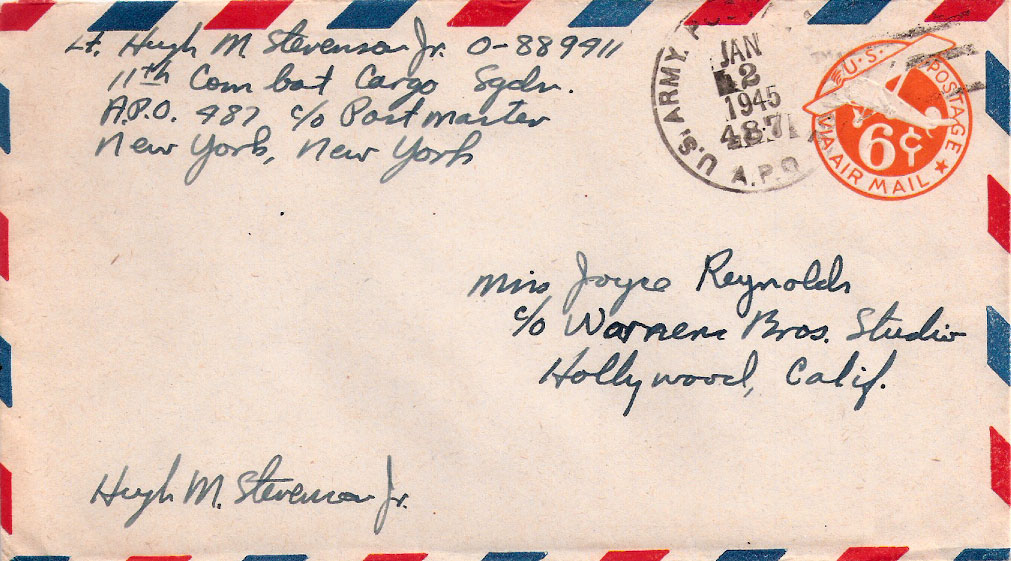 Lt. Hugh M Stevenson Jr. O-889911
11th Combat Cargo Sqdn.
A.P.O. 487 c/o Postmaster
New York, New York
U.S. ARMY
A.P.O.
JAN
2
1945
487
U.S. POSTAGE
6¢
VIA AIR MAIL
Miss Joyce Reynolds
c/o Warners Bros. Studio
Hollywood, Calif.
Hugh M. Stevenson Jr.